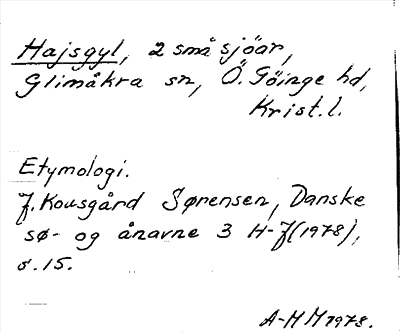 Hajsgyl, 2 små sjöar,
Glimåkra sn, Ö. Göinge hd,
Krist.l.
Etymologi.
J. Kousgård Sørensen, Danske
sø- og ånavne 3 H-J (1978),
s. 15.
A-M M 1978.